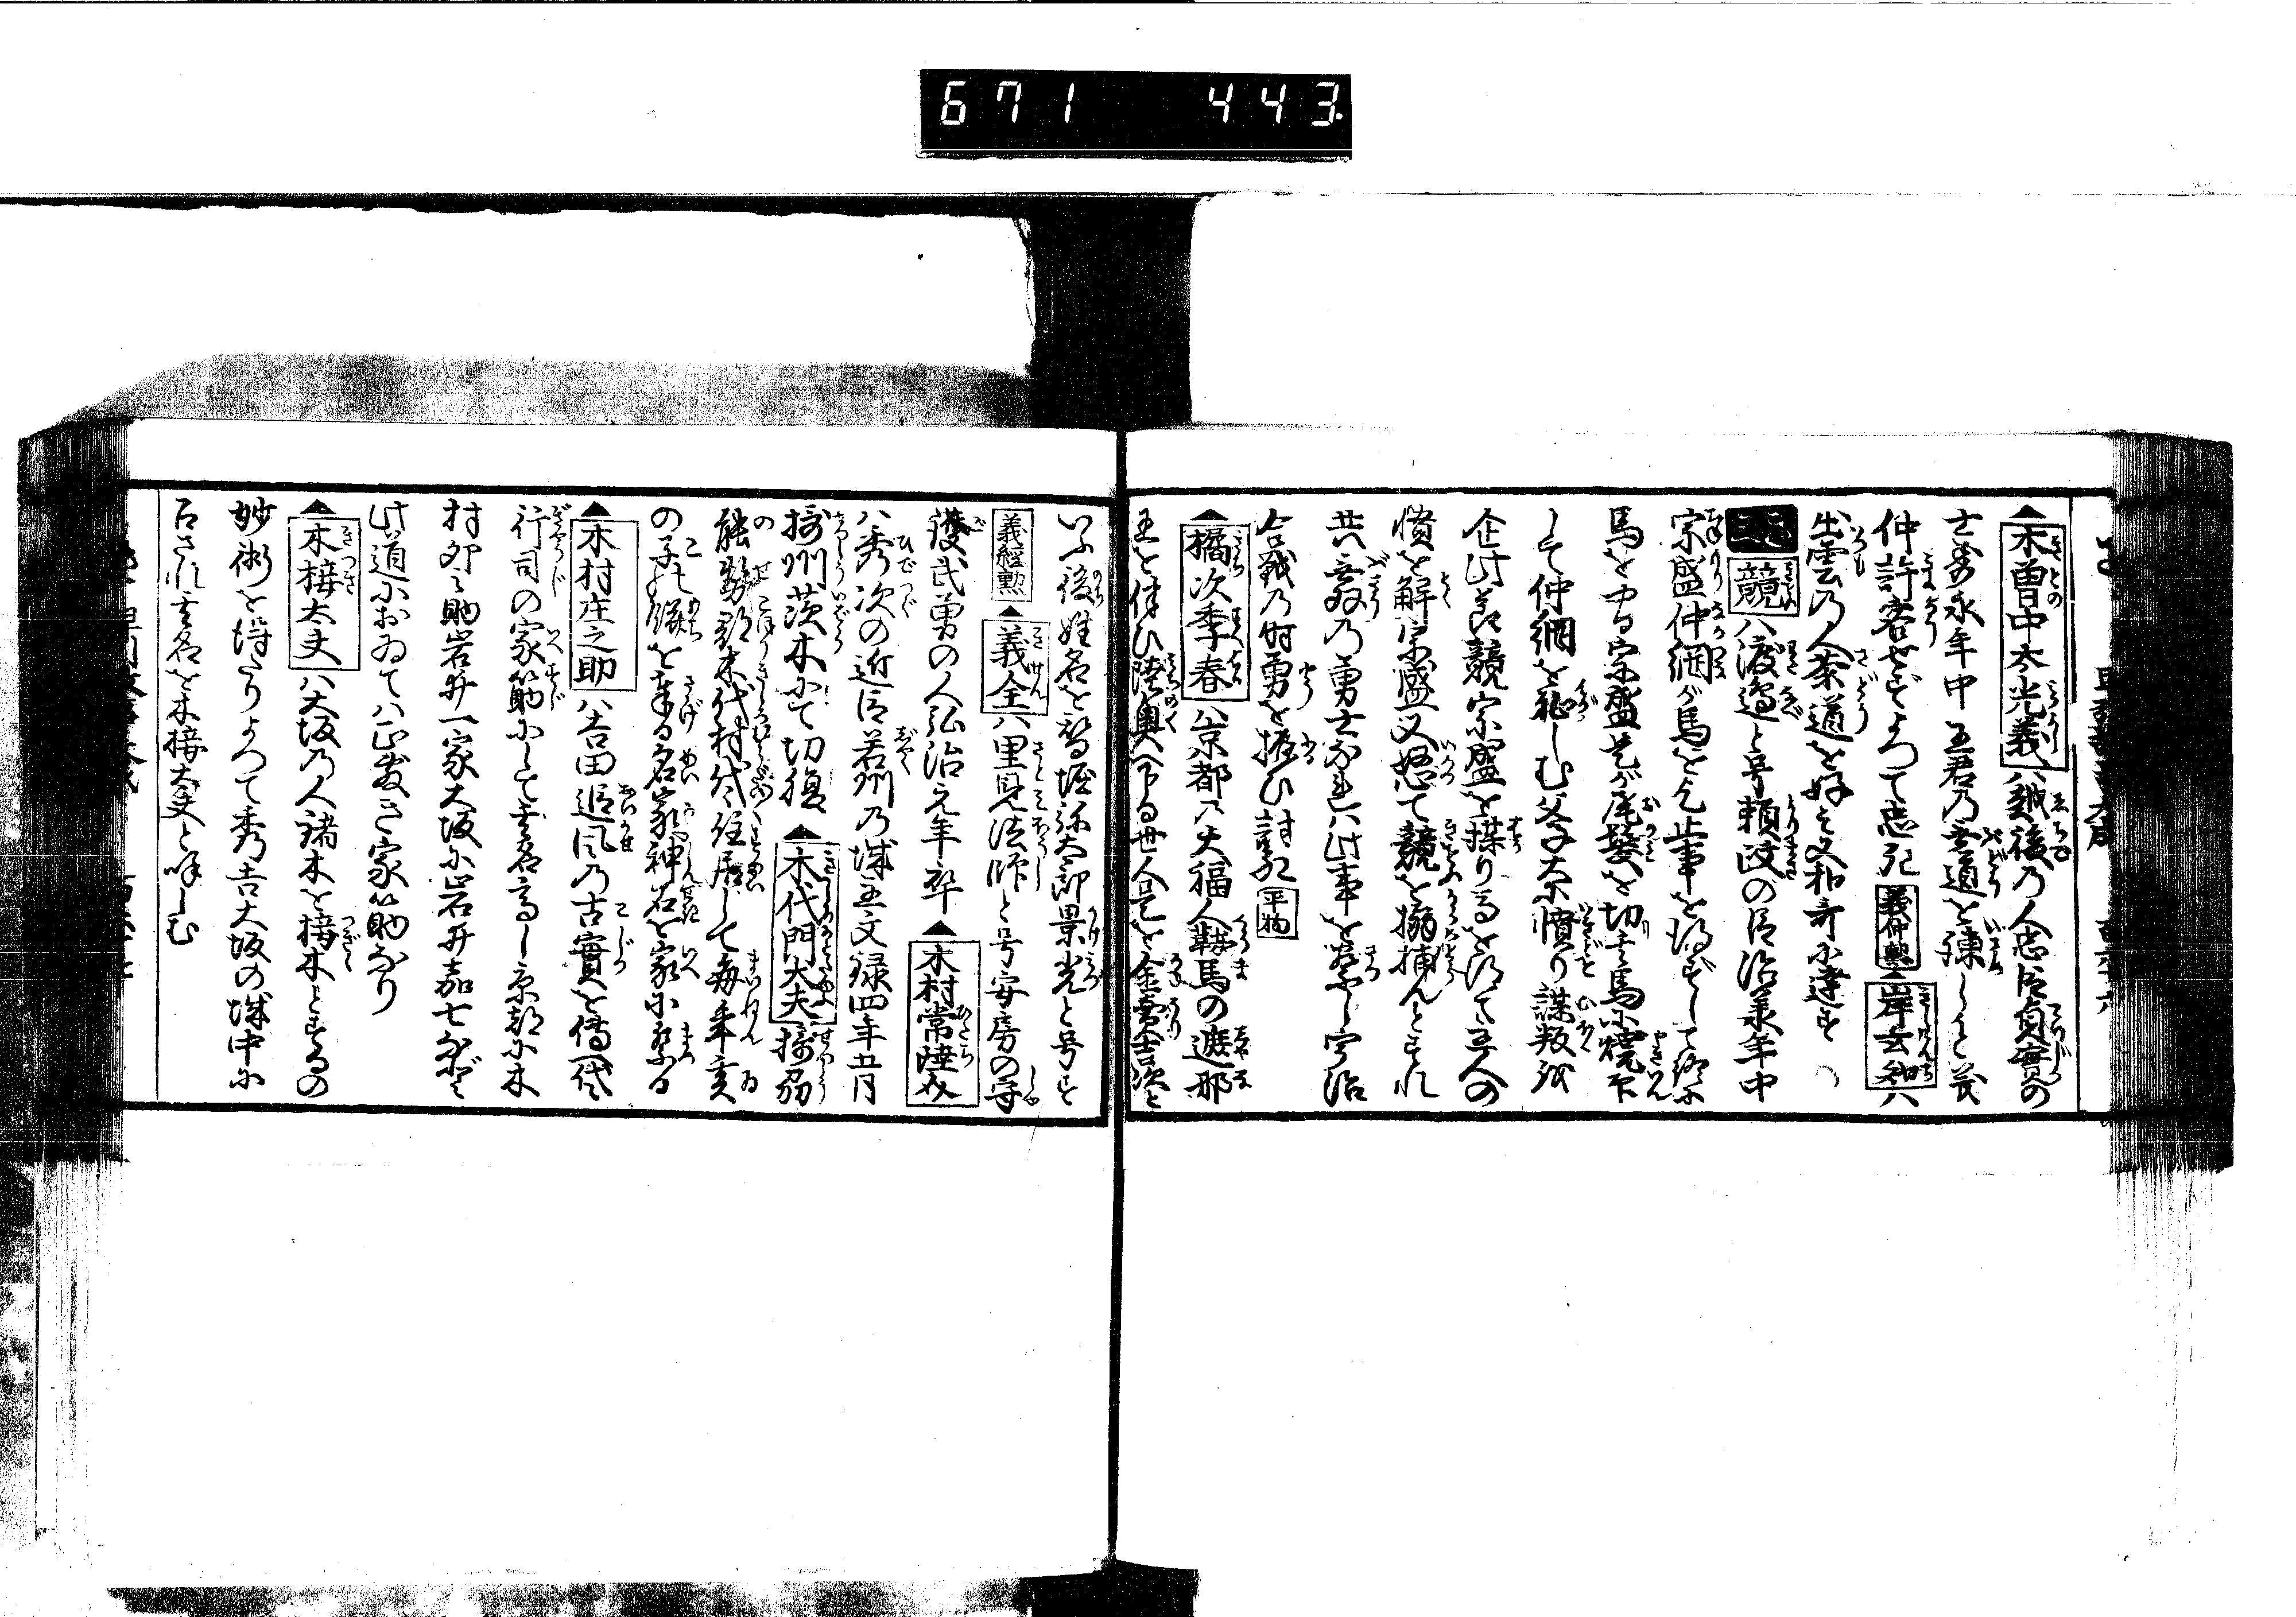 671 443
▲木曽中太光義ハ越後乃人忠臣貞実の
士寿永年中主君乃無道を諫しと義
仲許容せずよつて忠死 義仲勲 ▲岸玄知ハ
出雲乃人茶道を好ミ又和哥に達ス
競ハ渡邉と号頼政の臣治承年中
宗盛仲綱が馬を乞止事を得ずして終に
馬をやる宗盛其が尾髪を切其馬に焼印
して仲綱を恥しむ父子大に憤り謀叛を
企此前競宗盛を謀り馬を得て主人の
憤を解宗盛又怒て競を搦捕んとすれ
共無双乃勇士なれハ此事を禁し宇治
合戦乃時勇を振ひ討死 平物
▲橘次季春ハ京都乃大福人鞍馬の遮那
王を伴ひ陸奥へ下る世人是を金売吉次と
いふ後姓名を替堀弥太郎景光と号す
義経勲 ▲義全ハ里見法師と号安房の守
護武勇の人弘治元年卒 ▲木村常陸介
ハ秀次の近臣若州乃城主文禄四年五月
摂州茨木にて切腹 ▲木代門大夫 摂刕
能勢郡木代村ニ代々住居して毎年亥
の子の餅を奉る名家神石を家に祭る
▲木村庄之助ハ吉田追風乃古実を傳代々
行司の家筋にして其名高し京都に木
村卯之助岩井一家大坂に岩井嘉七など
此道におゐてハ正しき家筋なり
▲木接太夫ハ大坂乃人諸木を接木とするの
妙術を得たりよつて秀吉大坂の城中に
召され其名を木接太夫と呼しむ